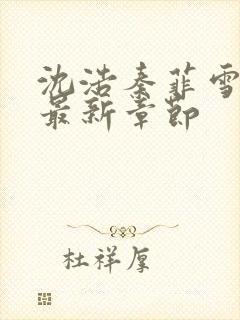 沈浩秦菲雪
最新章节
杜祥厚